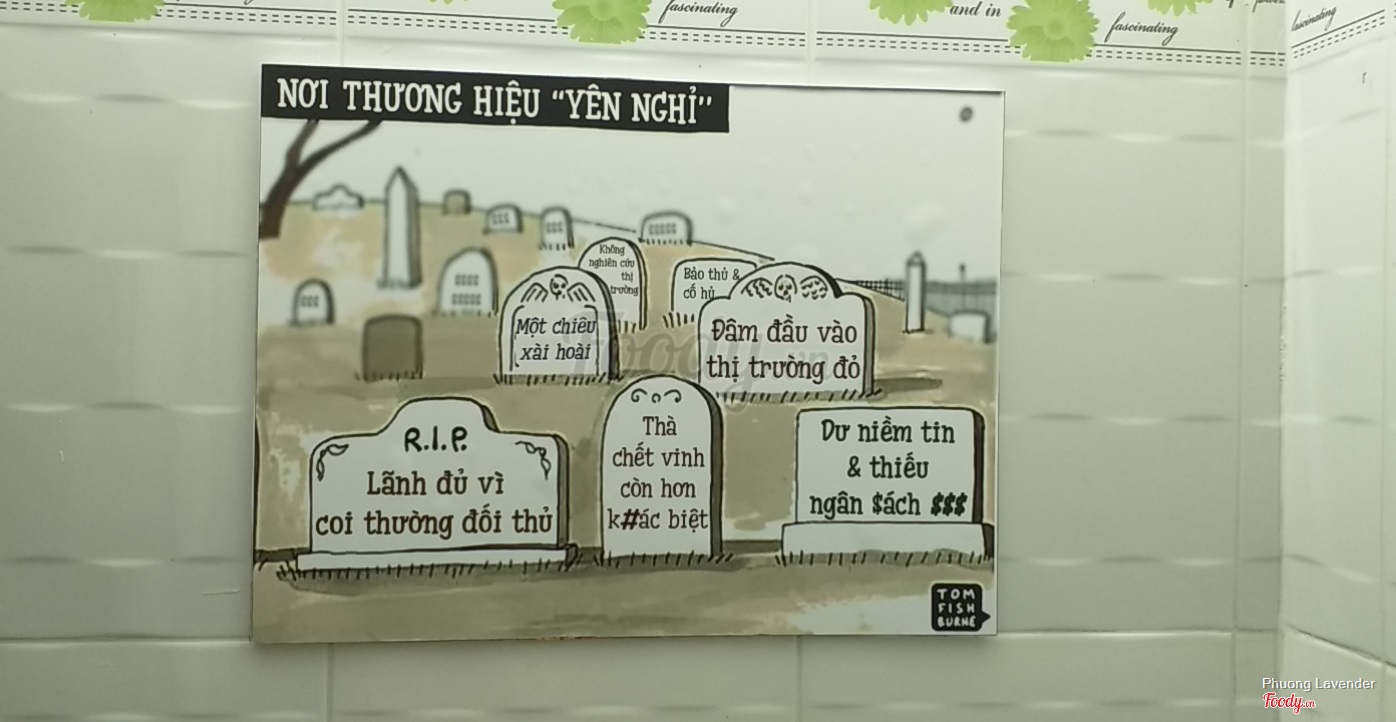 fascinating
and in
fascinating
fascinating
NƠI THƯƠNG HIỆU “YÊN NGHỈ”
Không
nghiên cứu
thị
trường
Bảo thủ &
cổ hủ
Một chiêu
xài hoài
Đâm đầu vào
thị trường đỏ
R.I.P.
Lãnh đủ vì
coi thường đối thủ
Thà
chết vinh
còn hơn
k#ác biệt
Dư niềm tin
& thiếu
ngân $ách $$$
TOM
FISH
BURNE
Foody.vn
Phuong Lavender
Foody.vn